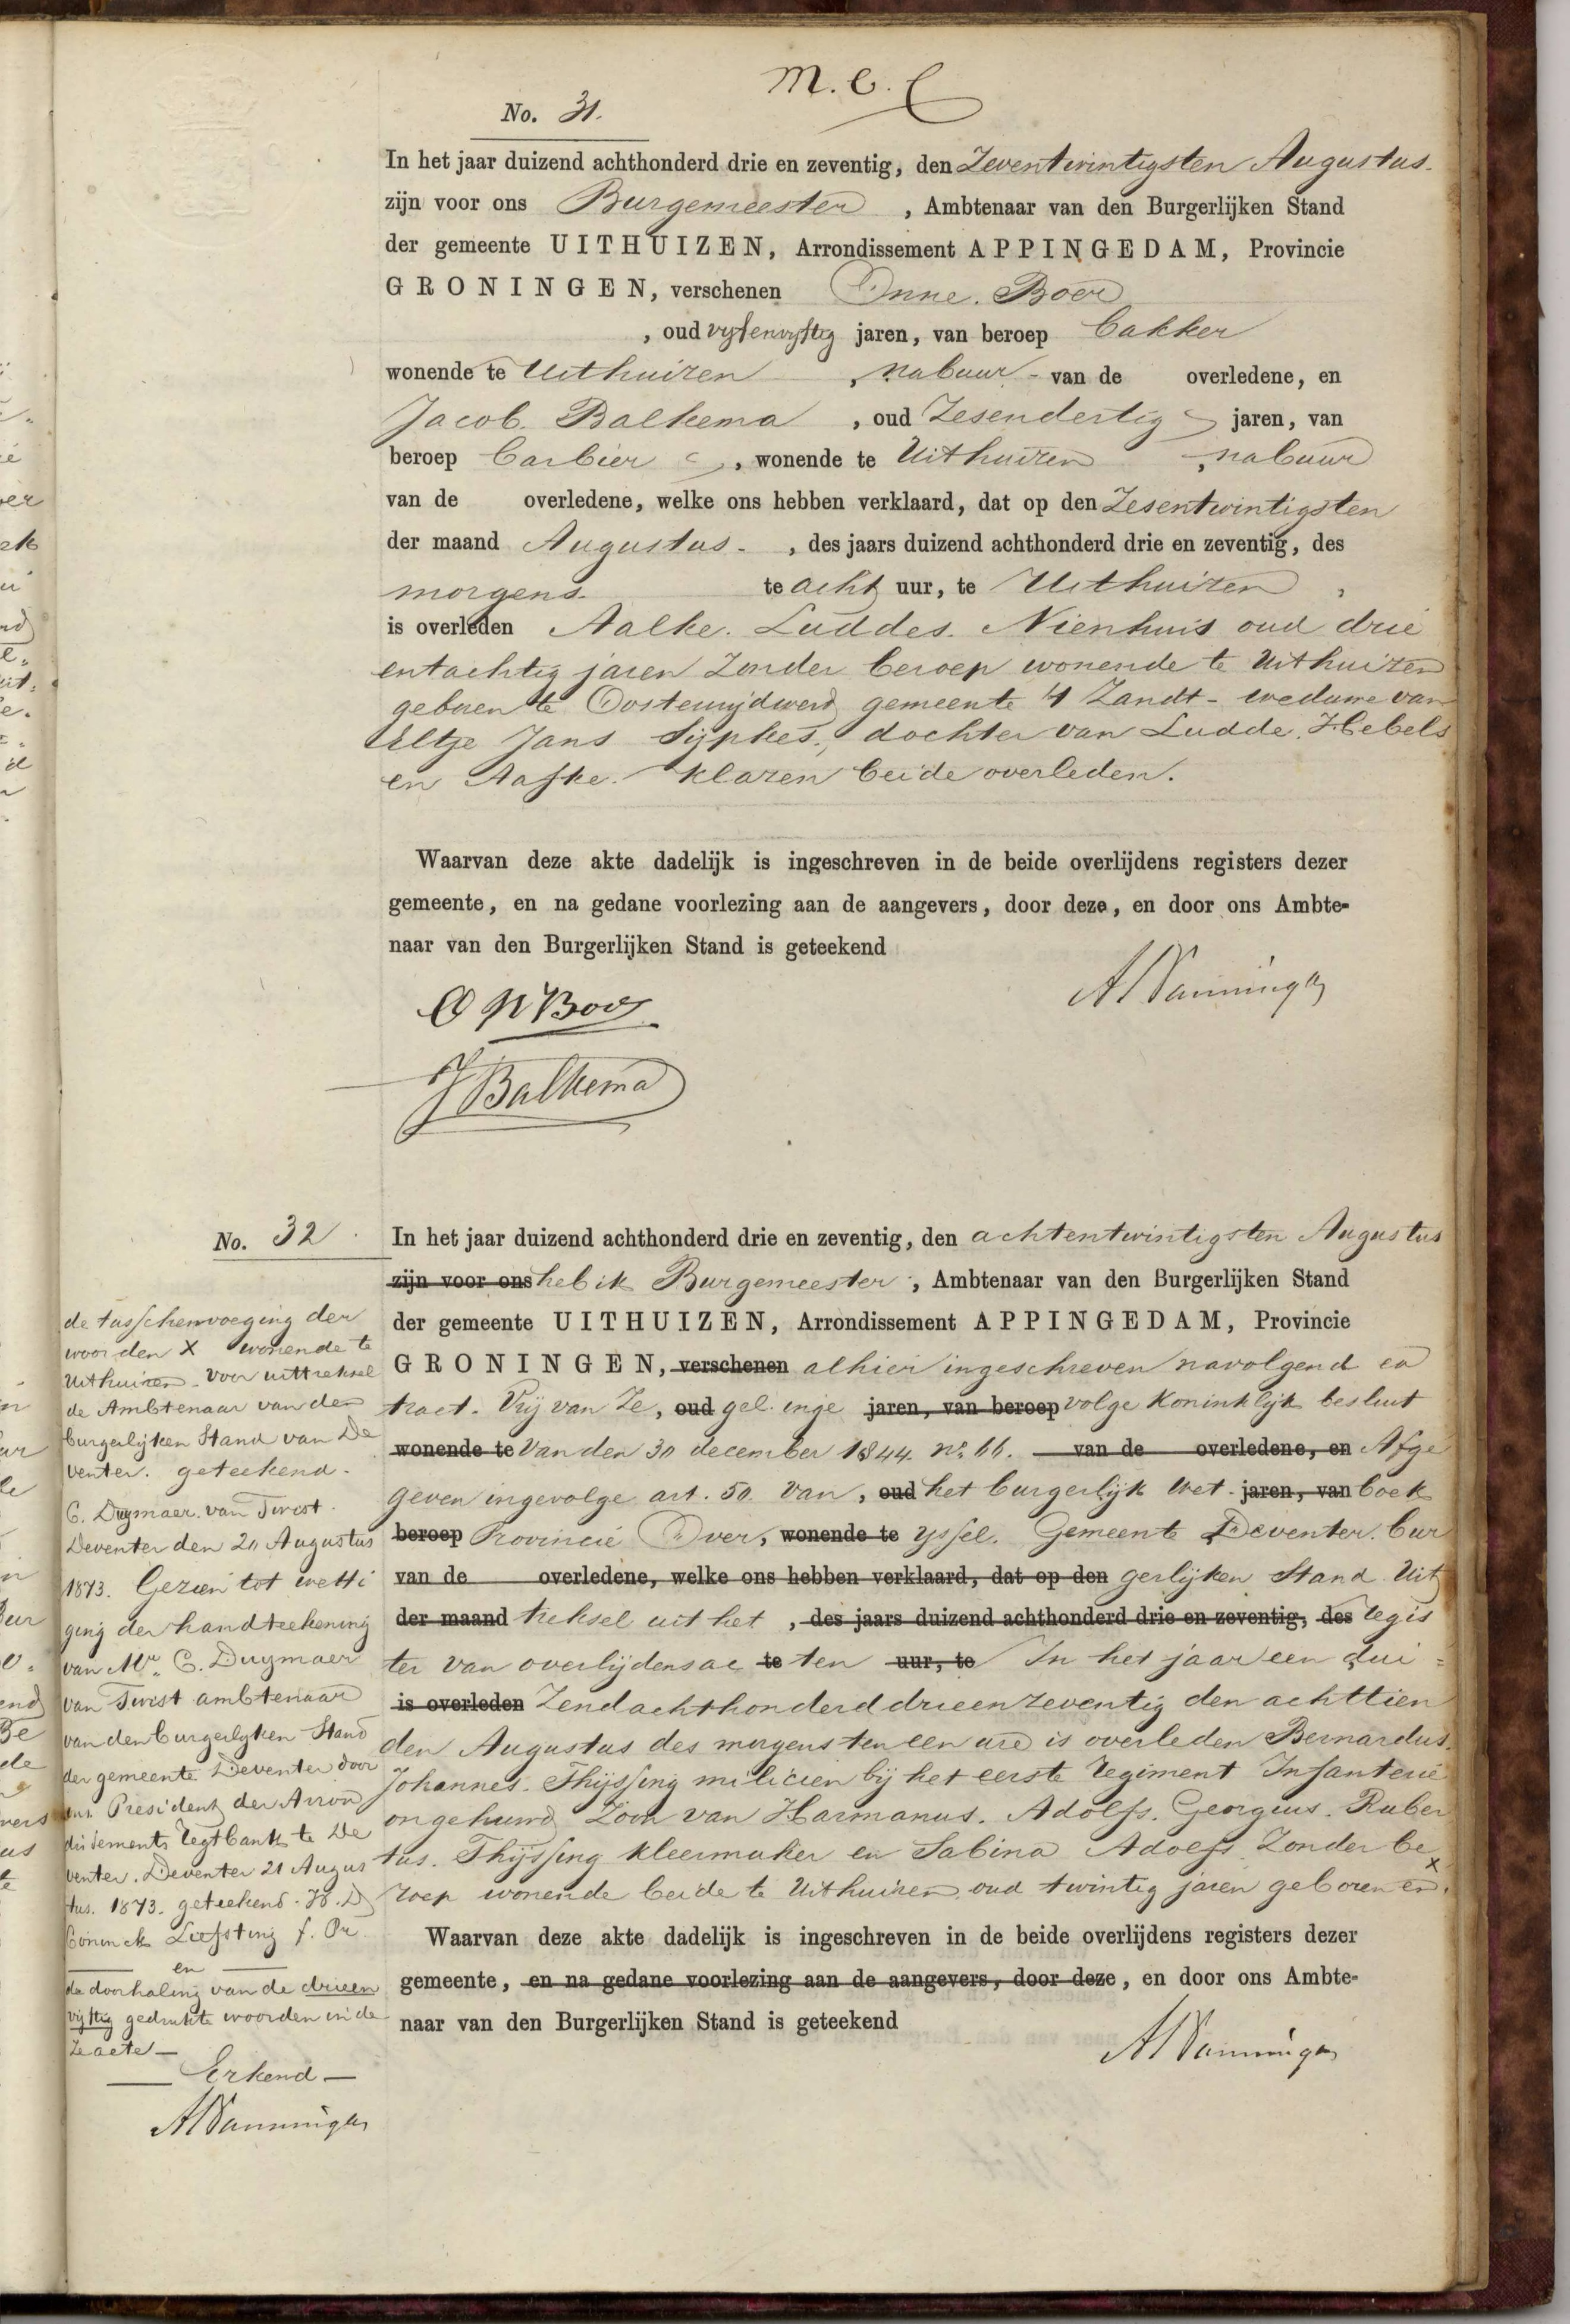 M. C. C
No. 31.
In het jaar duizend achthonderd drie en zeventig, den Zeventwintigsten Augustus.
zijn voor ons Burgemeester, Ambtenaar van den Burgerlijken Stand
der gemeente UITHUIZEN, Arrondissement APPINGEDAM, Provincie
GRONINGEN, verschenen Onne. Boer
, oud vijfenvijftig jaren, van beroep bakker
wonende te Uithuizen, nabuur - van de overledene, en
Jacob. Balkema, oud Zesendertig jaren, van
beroep barbier, wonende te Uithuizen, nabuur
van de overledene, welke ons hebben verklaard, dat op den Zesentwintigsten
der maand Augustus., des jaars duizend achthonderd drie en zeventig, des
morgens. te acht uur, te Uithuizen,
is overleden Aalke. Luddes. Nienhuis oud drie
entachtig jaren Zonder beroep wonende te Uithuizen
geboren te Oosternijdwerd gemeente 't Zandt - weduwe van
Eltje Jans Sijpkes, dochter van Ludde. Hebels
en Aafke. Klazen beide overleden.
Waarvan deze akte dadelijk is ingeschreven in de beide overlijdens registers dezer
gemeente, en na gedane voorlezing aan de aangevers, door deze, en door ons Ambte-
naar van den Burgerlijken Stand is geteekend
O P Boer
J Balkema
No. 32
In het jaar duizend achthonderd drie en zeventig, den achtentwintigsten Augustus
zijn voor ons heb ik Burgemeester, Ambtenaar van den Burgerlijken Stand
der gemeente UITHUIZEN, Arrondissement APPINGEDAM, Provincie
GRONINGEN, verschenen alhier ingeschreven navolgend ex
tract. Vrij van Ze, oud gel. inge jaren, van beroep volge Koninklijk besluit
wonende te van den 30 december 1844. no. 66. van de overledene, en Afge
geven ingevolge art. 50. van, oud het burgerlijk Wet- jaren, van boek
beroep Provincie Over, wonende te yssel. Gemeente Deventer. bur
van de overledene, welke ons hebben verklaard, dat op den gerlijken Stand Uit
der maand treksel uit het, des jaars duizend achthonderd drie en zeventig, des regis
ter van overlijdensac te ten uur, te In het jaar een dui =
is overleden Zend achthonderd drieenzeventig den achttien
den Augustus des morgens ten een ure is overleden Bernardus.
Johannes. Thijssing milicien bij het eerste regiment Infanterie
ongehuwd Zoon van Harmanus. Adolfs. Georgius. Ruber
tus. Thijssing kleermaker en Sabina Adolfs. Zonder be
roep wonende beide te Uithuizen, oud twintig jaren geboren en x
Waarvan deze akte dadelijk is ingeschreven in de beide overlijdens registers dezer
gemeente, en na gedane voorlezing aan de aangevers, door deze, en door ons Ambte-
naar van den Burgerlijken Stand is geteekend
de tusschenvoeging der
woorden X wonende te
Uithuizen - voor uittreksel
de Ambtenaar van den
burgerlijken Stand van De
venter. geteekend.
C. Duymaer. van Twist.
Deventer den 20 Augustus
1873. Gezien tot wetti
ging der handteekening
van Mr. C. Duymaer
van Twist ambtenaar
van den burgerlyken Stand
der gemeente Deventer door
ons President der Arron
dissements regtbank te De
venter. Deventer 21 Augus
tus. 1873. geteekend. H. D
Coninck Liefsting f. Pr.
en
de doorhaling van de drieen
vijftig gedrukte woorden in de
Ze acte —
— Erkend —